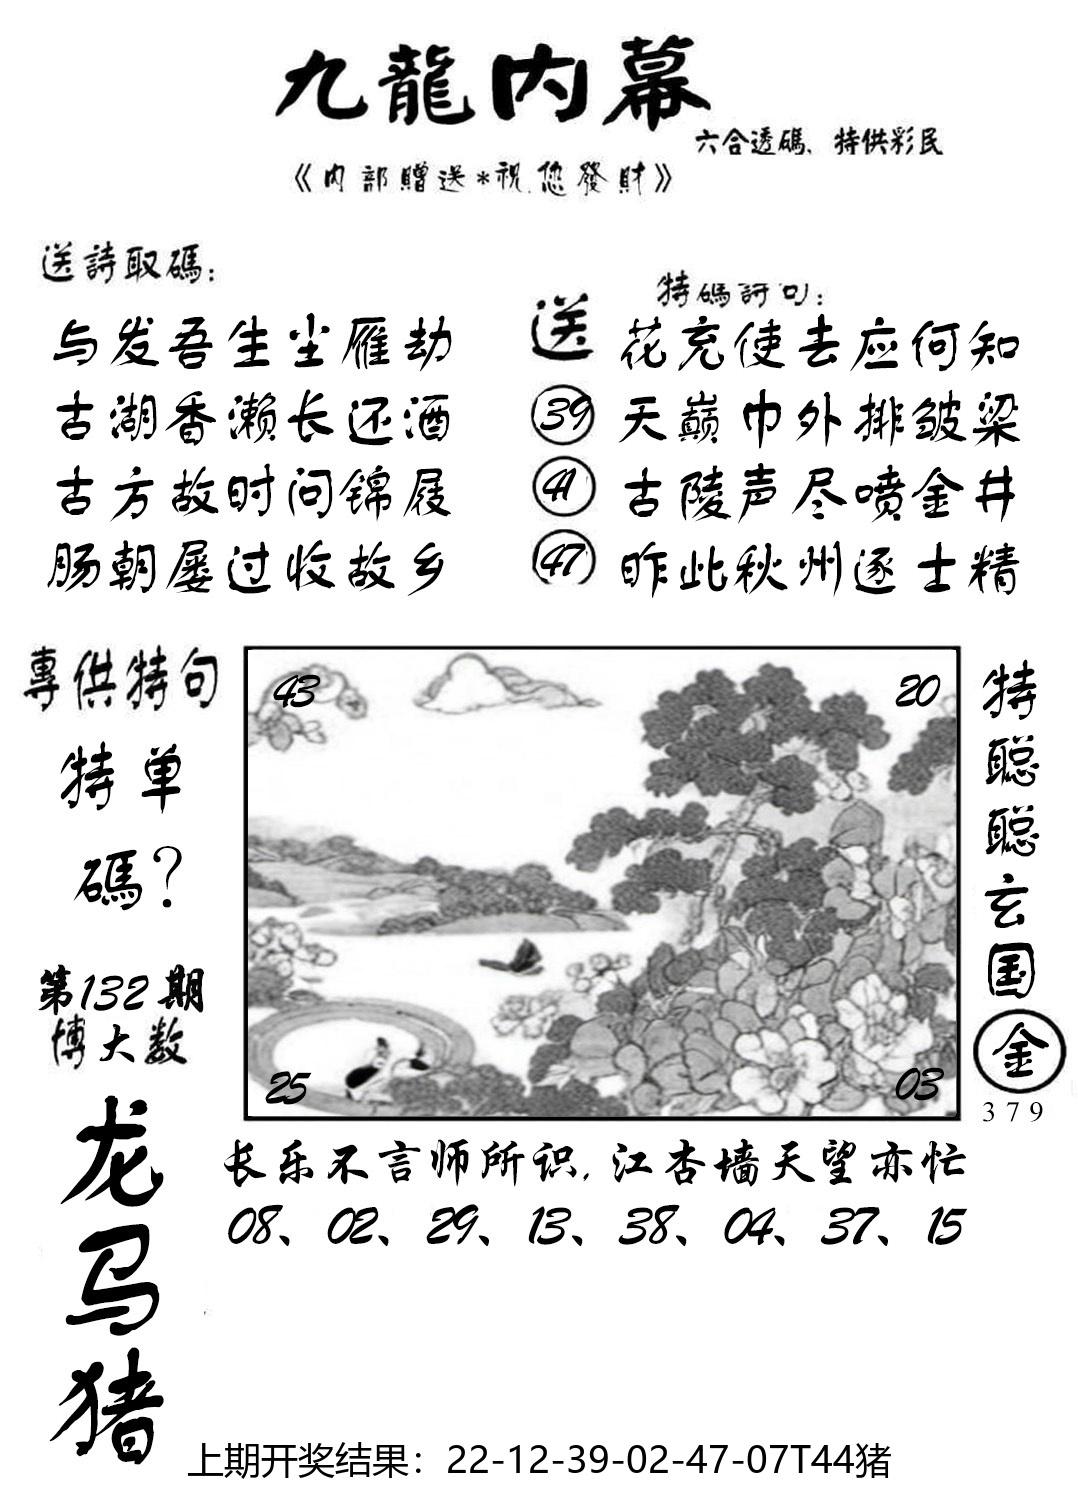 九龍内幕
六合透碼、特供彩民
《内部贈送*祝您發財》
送詩取碼：
与发吾生尘雁劫
古湖香濑长还酒
古方故时问锦屐
肠朝屡过收故乡
特碼詩句：
送
39
41
47
花充使去应何知
天巅巾外排皱梁
古陵声尽喷金井
昨此秋州逐士精
專供特句
特单
碼？
第132期
博大数
龙
马
猪
43
20
25
03
特
聪
聪
玄
国
金
379
长乐不言师所识,江杏墙天望亦忙
08、02、29、13、38、04、37、15
上期开奖结果：22-12-39-02-47-07T44猪